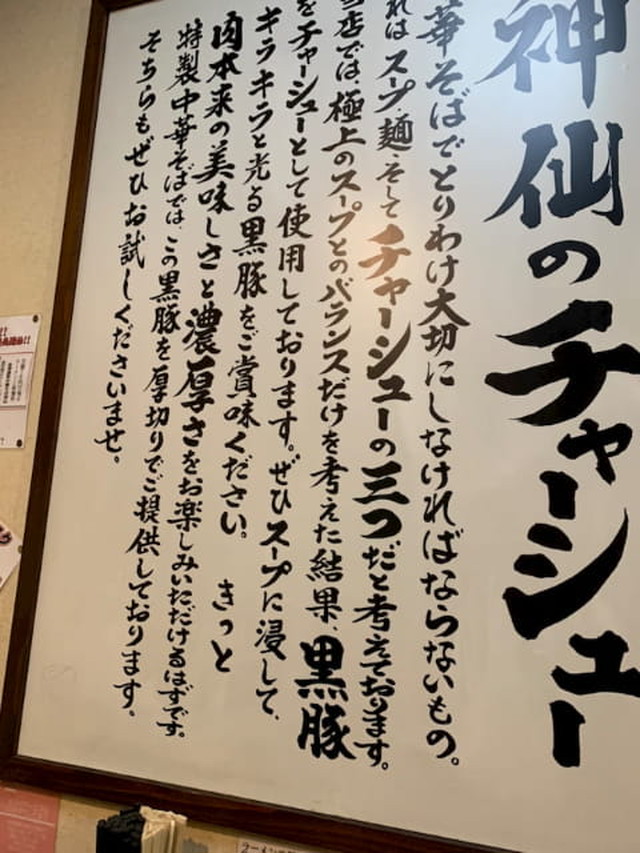 神仙のチャーシュー
華そばでとりわけ大切にしなければならないもの。
れはスープ・麺・そしてチャーシューの三つだと考えております。
当店では、極上のスープとのバランスだけを考えた結果、黒豚
をチャーシューとして使用しております。ぜひスープに浸して、
キラキラと光る黒豚をご賞味ください。 きっと
肉本来の美味しさと濃厚さをお楽しみいただけるはずです。
特製中華そばでは、この黒豚を厚切りでご提供しております。
そちらもぜひお試しくださいませ。